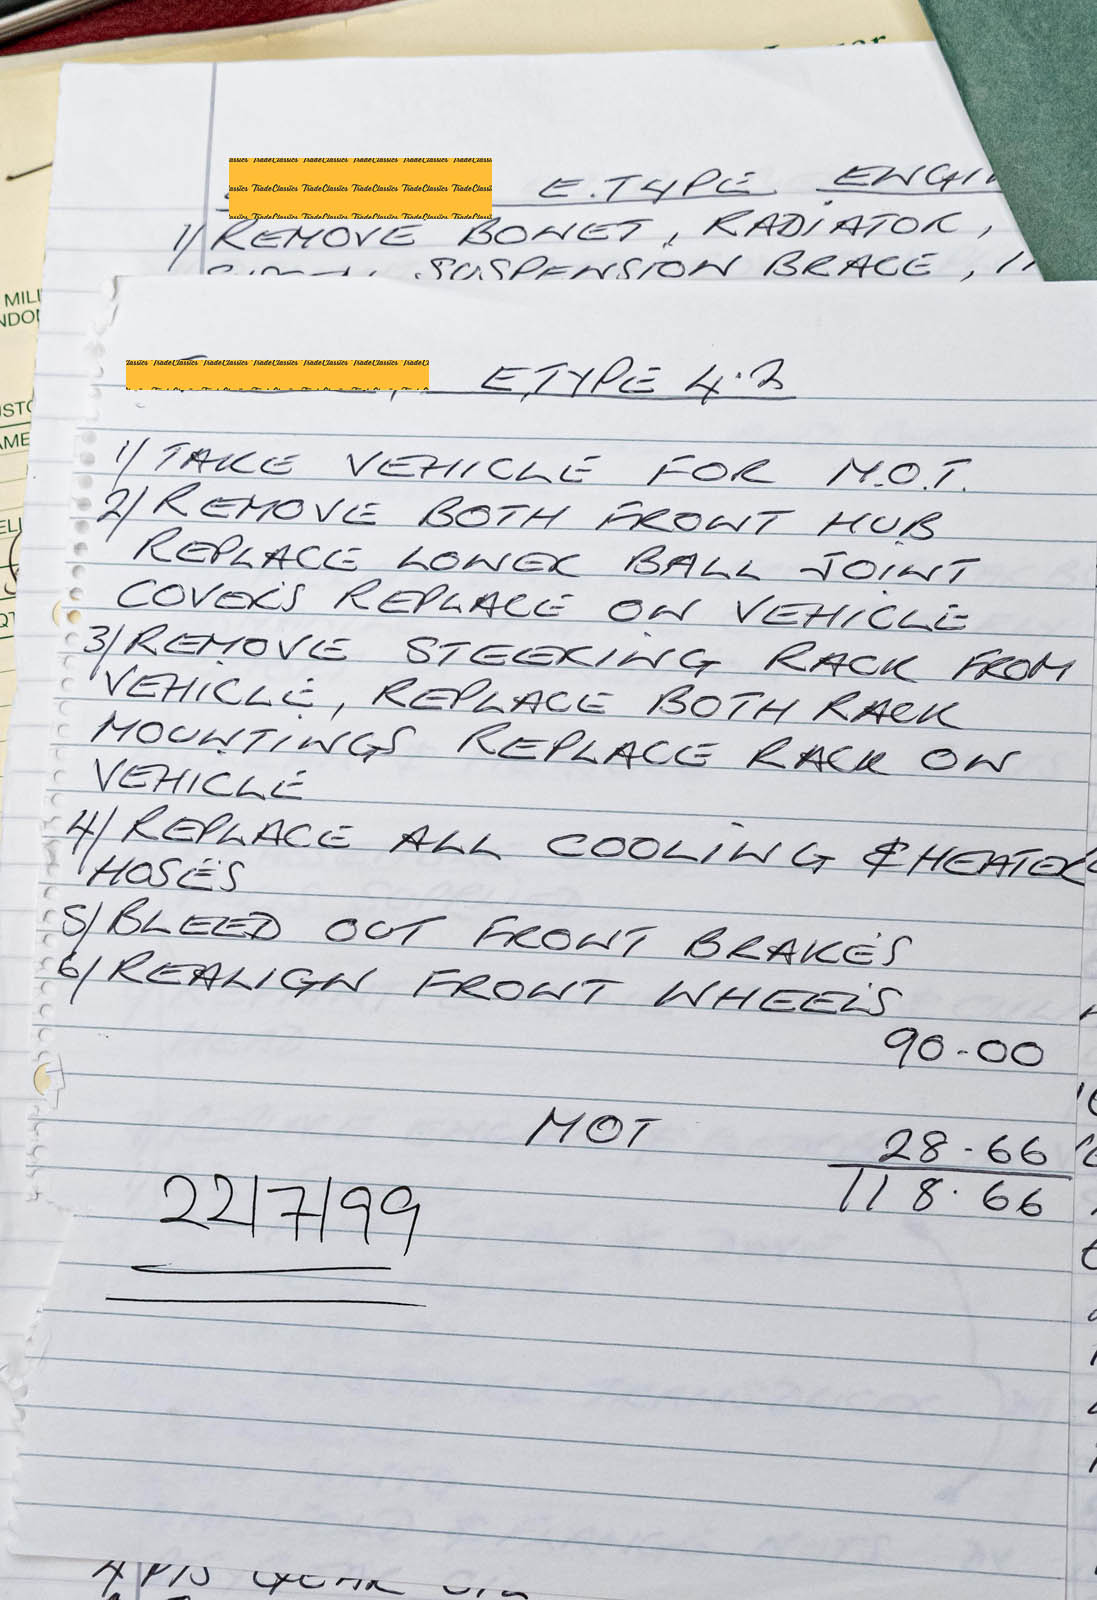 TradeClassics TradeClassics TradeClassics TradeClassics TradeClassics
E.TYPE ENGIN
1/ REMOVE BONET, RADIATOR,
SUSPENSION BRACE,
MILE
NDON
USTO
AME
TradeClassics TradeClassics TradeClassics TradeClassics TradeClassics
E,TYPE 4.2
1/ TAKE VEHICLE FOR M.O.T.
2/ REMOVE BOTH FRONT HUB
REPLACE LOWER BALL JOINT
COVER'S REPLACE ON VEHICLE
3/ REMOVE STEERING RACK FROM
VEHICLE, REPLACE BOTH RACK
MOUNTINGS REPLACE RACK ON
VEHICLE
4/ REPLACE ALL COOLING & HEATER
HOSE'S
5/ BLEED OUT FRONT BRAKE'S
6/ REALIGN FRONT WHEEL'S
90-00
MOT 28-66
118.66
22/7/99